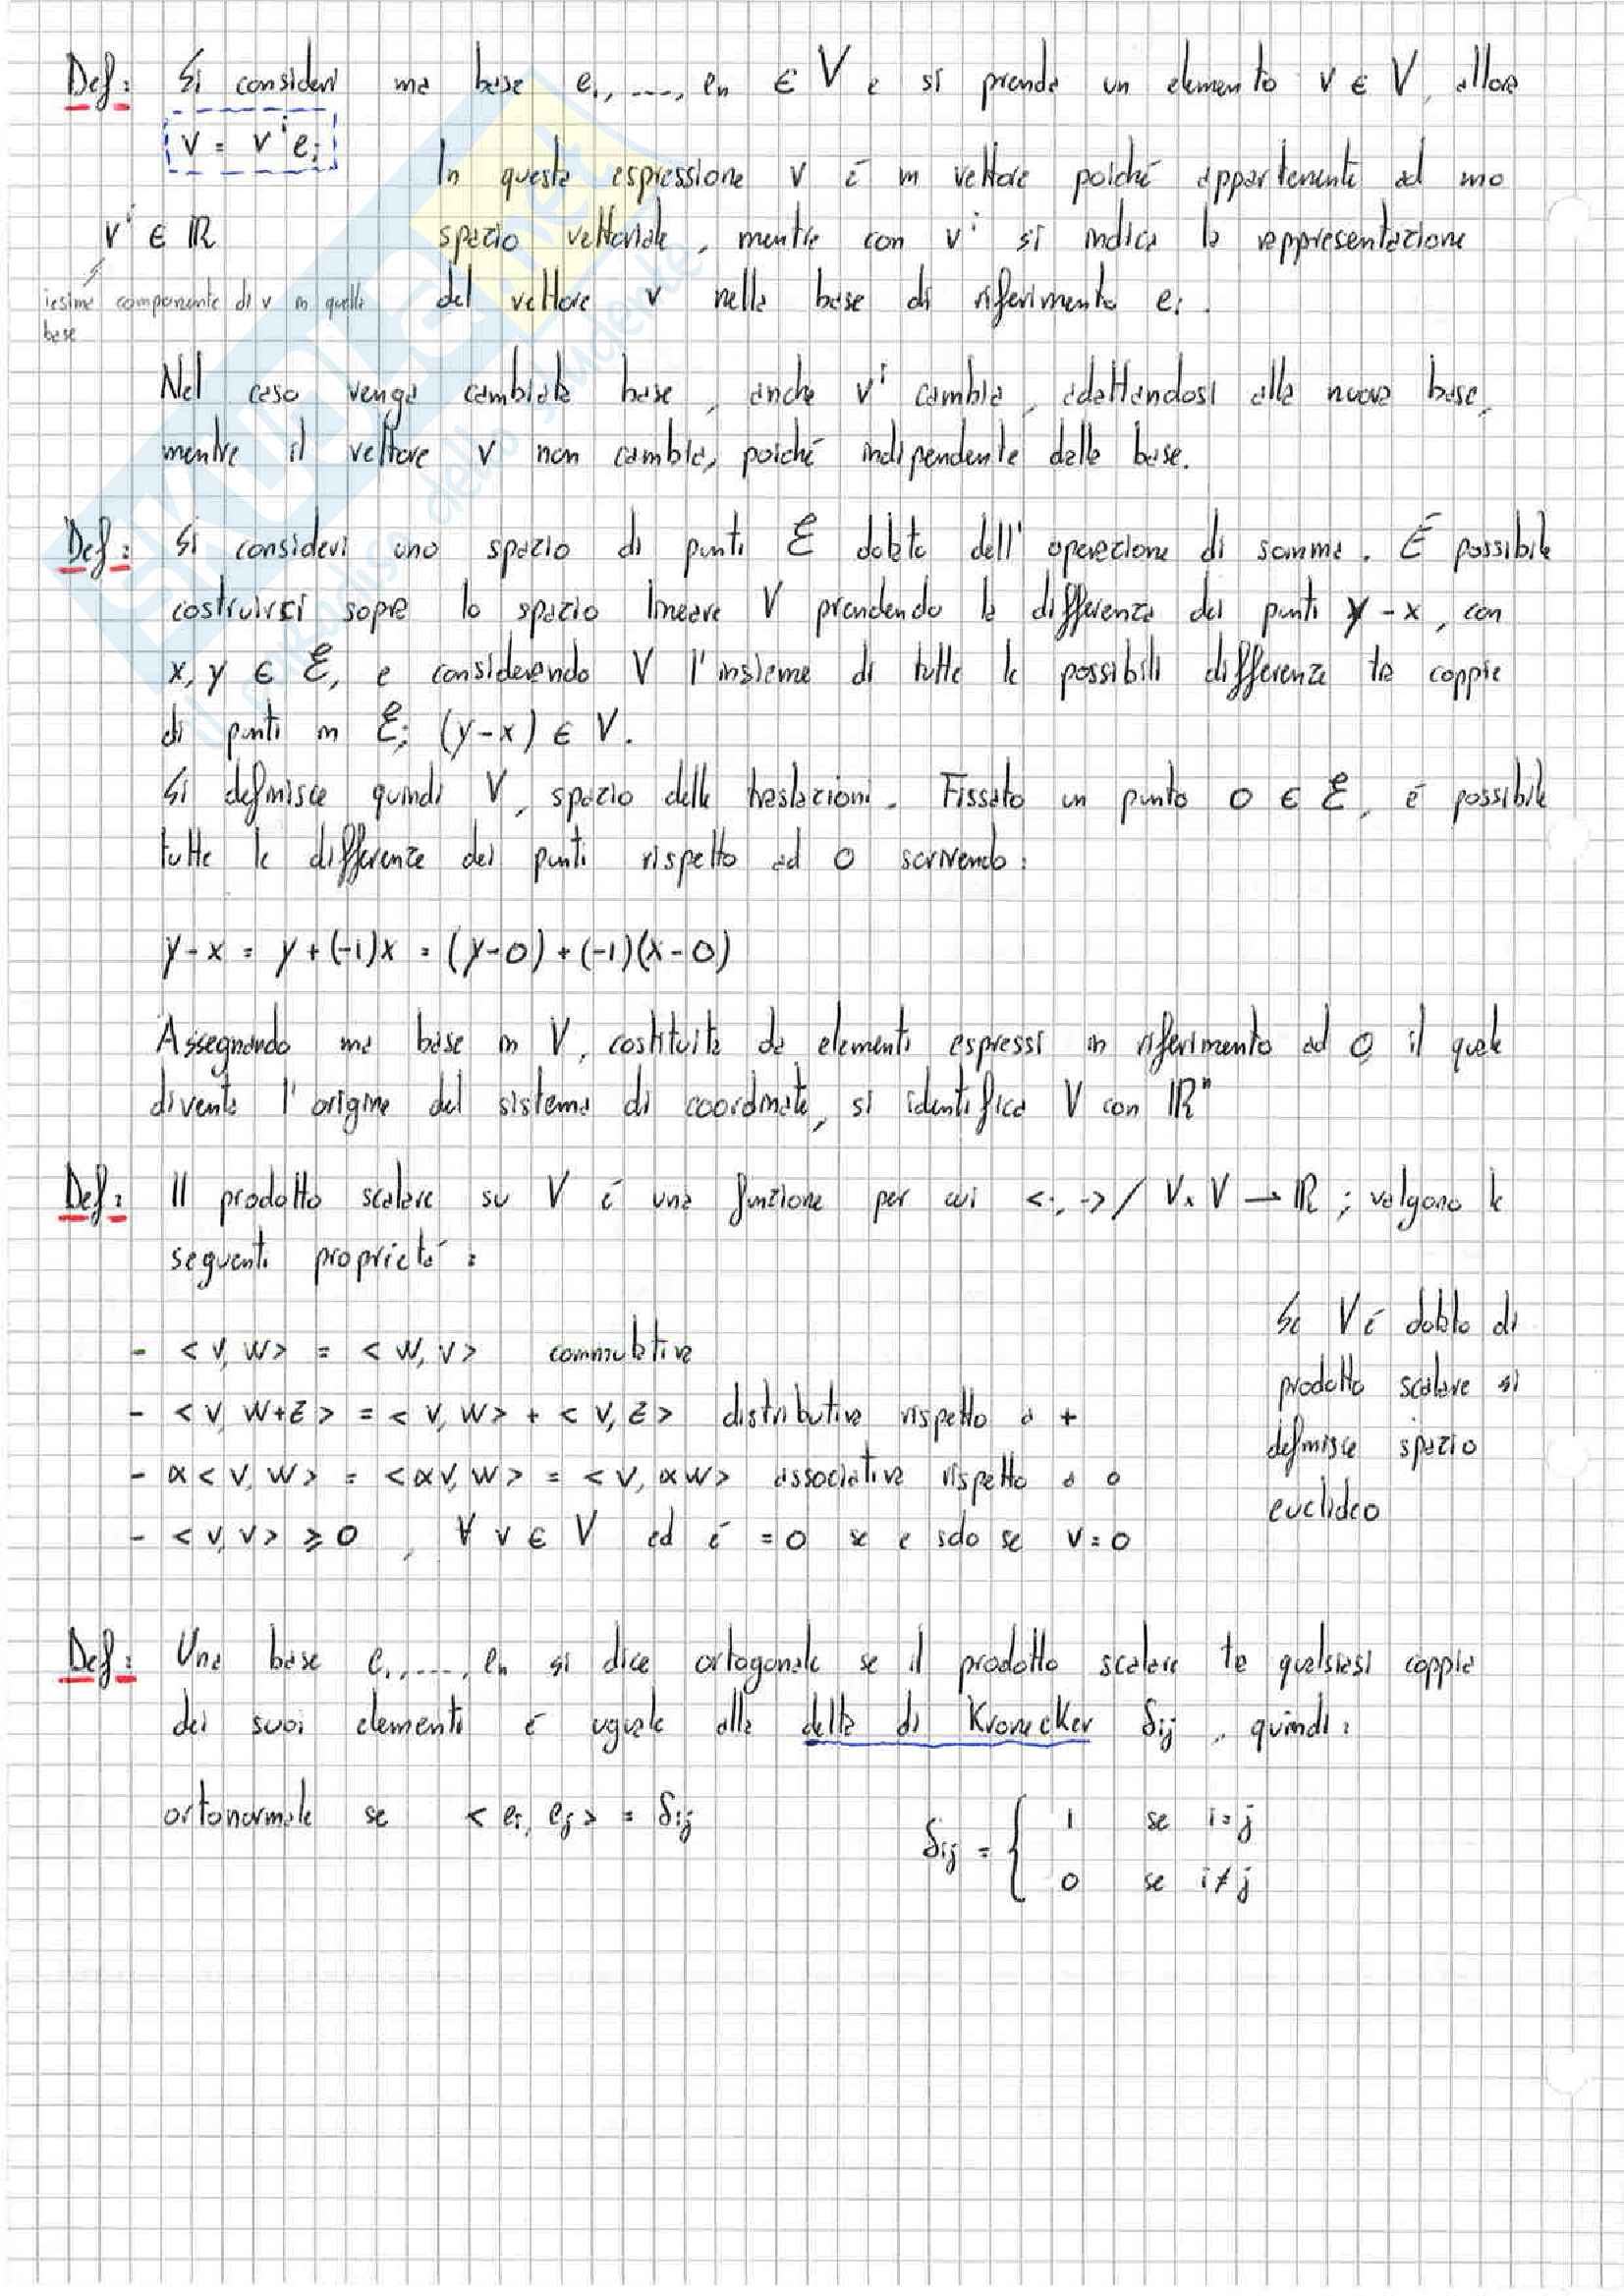 Def: Si consideri una base e₁, ...., eₙ ∈ V e si prenda un elemento v ∈ V, allora
v = vⁱeᵢ
In questa espressione v è un vettore poiché appartenente ad uno
vⁱ ∈ ℝ
spazio vettoriale, mentre con vⁱ si indica la rappresentazione
iesima componente di v in quella base
del vettore v nella base di riferimento eᵢ.
Nel caso venga cambiata base, anche vⁱ cambia, adattandosi alla nuova base,
mentre il vettore v non cambia, poiché indipendente dalla base.
Def: Si consideri uno spazio di punti ℰ dotato dell'operazione di somma. È possibile
costruirci sopra lo spazio lineare V prendendo la differenza dei punti y - x, con
x, y ∈ ℰ, e considerando V l'insieme di tutte le possibili differenze tra coppie
di punti in ℰ; (y-x) ∈ V.
Si definisce quindi V, spazio delle traslazioni. Fissato un punto O ∈ ℰ, è possibile
tutte le differenze dei punti rispetto ad O scrivendo:
y-x = y+(-1)x = (y-O)+(-1)(x-O)
Assegnando una base in V, costituita da elementi espressi in riferimento ad O il quale
diventa l'origine del sistema di coordinate, si identifica V con ℝⁿ
Def: Il prodotto scalare su V è una funzione per cui <·,·> / V×V → ℝ ; valgono le
seguenti proprietà:
- <v,w> = <w,v> commutativa
- <v,w+z> = <v,w> + <v,z> distributiva rispetto a +
- α<v,w> = <αv,w> = <v,αw> associativa rispetto a ∘
- <v,v> ≥ 0 , ∀ v ∈ V ed è =0 se e solo se v=0
Se V è dotato di
prodotto scalare si
definisce spazio
euclideo
Def: Una base e₁, ...., eₙ si dice ortogonale se il prodotto scalare tra qualsiasi coppia
dei suoi elementi è uguale alla delta di Kronecker δᵢⱼ, quindi:
ortonormale se <eᵢ, eⱼ> = δᵢⱼ
δᵢⱼ = { 1 se i=j
0 se i≠j